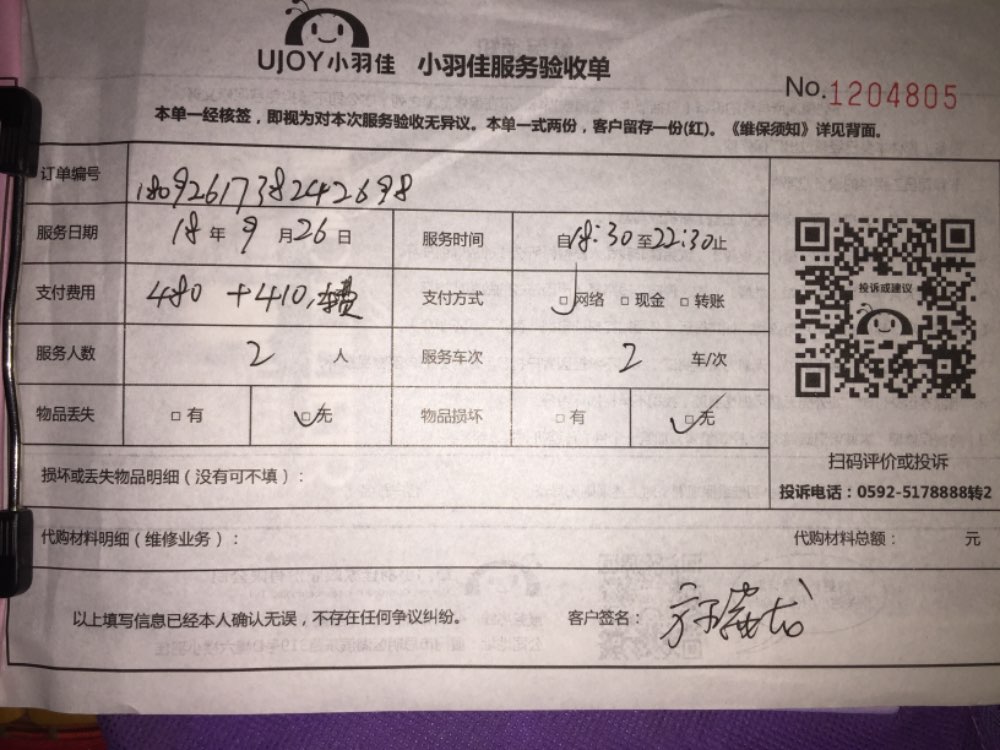 UJOY小羽佳 小羽佳服务验收单
No.1204805
本单一经核签，即视为对本次服务验收无异议。本单一式两份，客户留存一份(红)。《维保须知》详见背面。
订单编号 1809261738242698
服务日期 18年9月26日 服务时间 自18:30至22:30止
支付费用 480 +410 支付方式 □网络 □现金 □转账
服务人数 2 人 服务车次 2 车/次
物品丢失 □有 □无 物品损坏 □有 □无
投诉或建议
扫码评价或投诉
损坏或丢失物品明细（没有可不填）：
投诉电话：0592-5178888转2
代购材料明细（维修业务）： 代购材料总额： 元
以上填写信息已经本人确认无误，不存在任何争议纠纷。 客户签名：